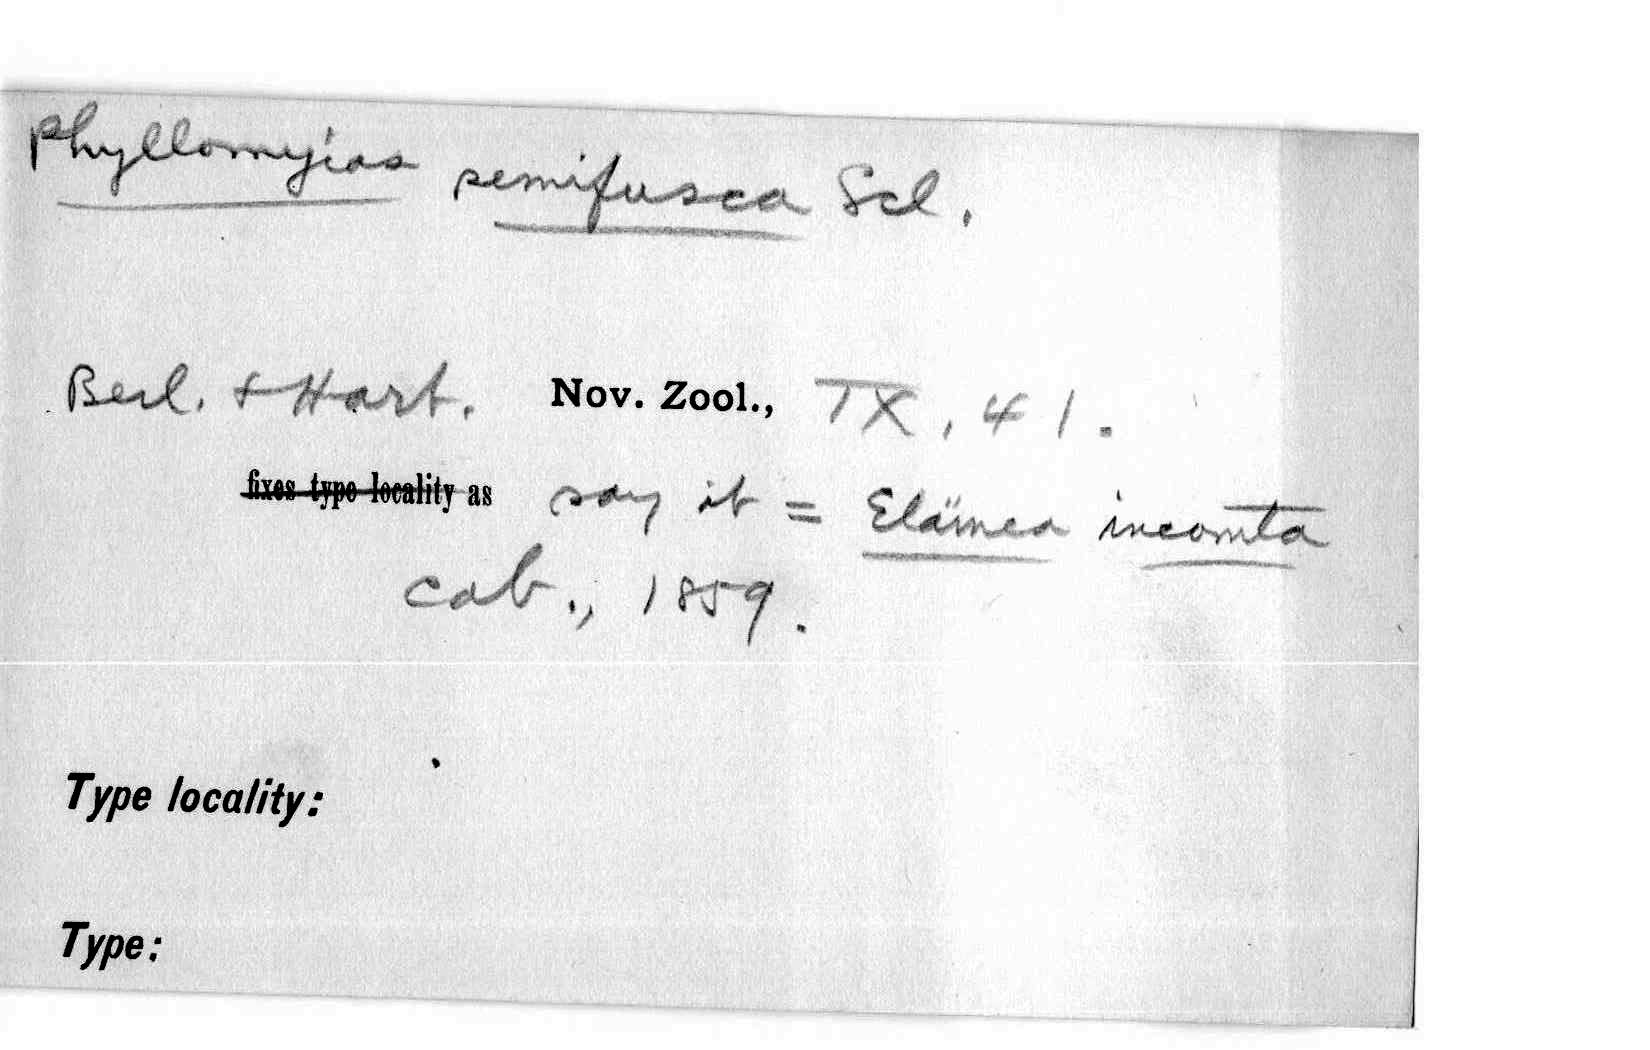 Phyllomyias semifusca Scl.
Berl. + Hart. Nov. Zool., IX, 41.
fixes type locality as say it = Elaïnea incomta
Cab., 1859.
Type locality:
Type: